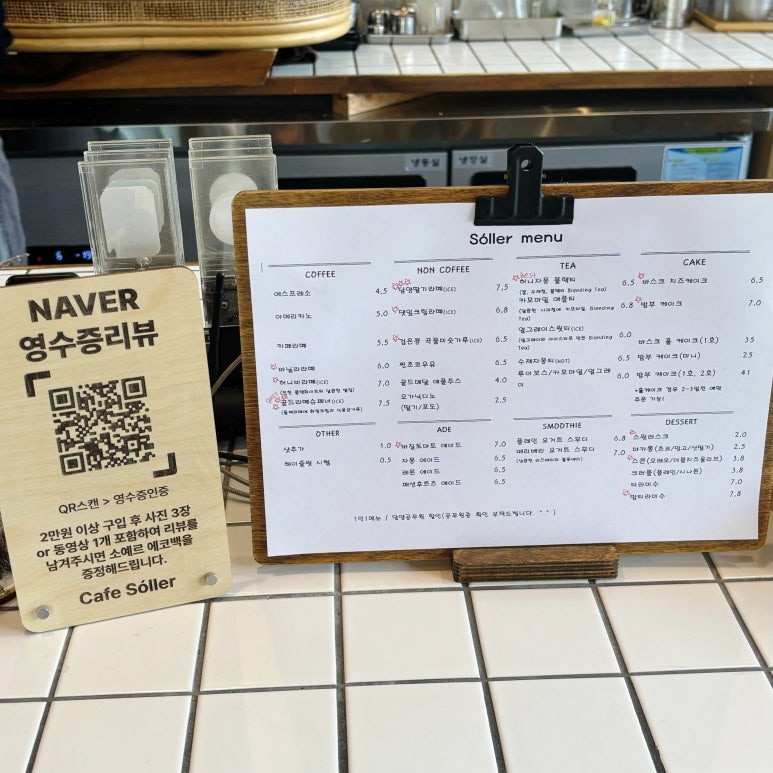 냉동실
냉장실
NAVER
영수증리뷰
QR스캔 > 영수증인증
2만원 이상 구입 후 사진 3장
or 동영상 1개 포함하여 리뷰를
남겨주시면 소예르 에코백을
증정해드립니다.
Cafe Sóller
Sóller menu
COFFEE
에스프레소 4.5
아메리카노 5.0
카페라떼 5.5
바닐라라떼 6.0
허니비라떼(ICE) 7.0
Best
골드라떼슈페너(ICE) 7.5
OTHER
샷추가 1.0
헤이즐릿 시럽 0.5
NON COFFEE
담양딸기라떼(ICE) 7.5
댓잎크림라떼(ICE) 6.8
검은콩 곡물미숫가루(ICE) 6.5
찐초코우유 6.5
골드메달 애플주스 4.0
오가닉디노
(딸기/포도) 2.5
ADE
바질토마토 에이드 7.0
자몽 에이드 6.5
레몬 에이드 6.5
패션후르츠 에이드 6.5
TEA
Best
허니자몽 블랙티 6.5
카모마일 애플티 6.8
(달콤한 사과칩에 카모마일 Blending
Tea)
얼그레이스윗티(ICE) 6.0
Tea)
수제자몽티(HOT) 6.5
루이보스/카모마일/얼그레
이 6.0
SMOOTHIE
플레인 요거트 스무디 6.8
베리베리 요거트 스무디 7.0
CAKE
바스크 치즈케이크 6.5
밤부 케이크 7.0
바스크 홀 케이크(1호) 35
밤부 케이크(미니) 25
밤부 케이크(1호, 2호) 41
*홀케이크 경우 2-3일전 예약
주문 가능!
DESSERT
스윗러스크 2.0
마카롱(초코/망고/산딸기) 2.5
스콘(오레오/더블치즈올리브) 3.8
크러플(플레인/시나몬) 3.8
티라미수 7.0
밤티라미수 7.8
1인1메뉴 / 담양공무원 할인(공무원증 확인 부탁드립니다. ^^)